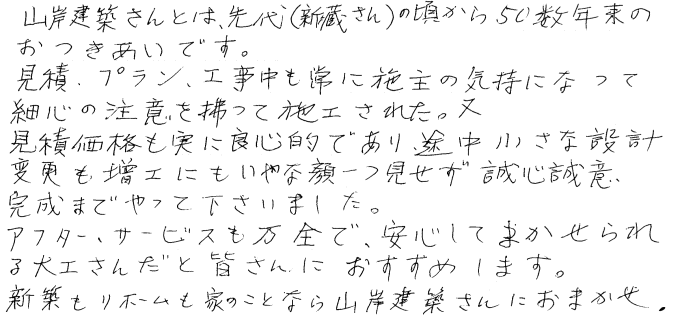 山岸建築さんとは、先代(新蔵さん)の頃から50数年来の
おつきあいです。
見積、プラン、工事中も常に施主の気持になって
細心の注意を払って施工された。又
見積価格も実に良心的であり、途中小さな設計
変更も増工にもいやな顔一つ見せず誠心誠意、
完成までやって下さいました。
アフター、サービスも万全で、安心してまかせられ
る大工さんだと皆さんにおすすめします。
新築もリホームも家のことなら山岸建築さんにおまかせ.